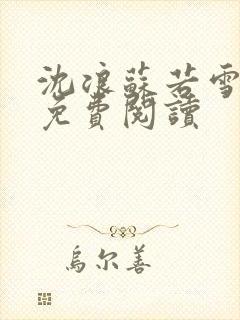 沈浪蘇若雪
免費閱讀
烏尔善